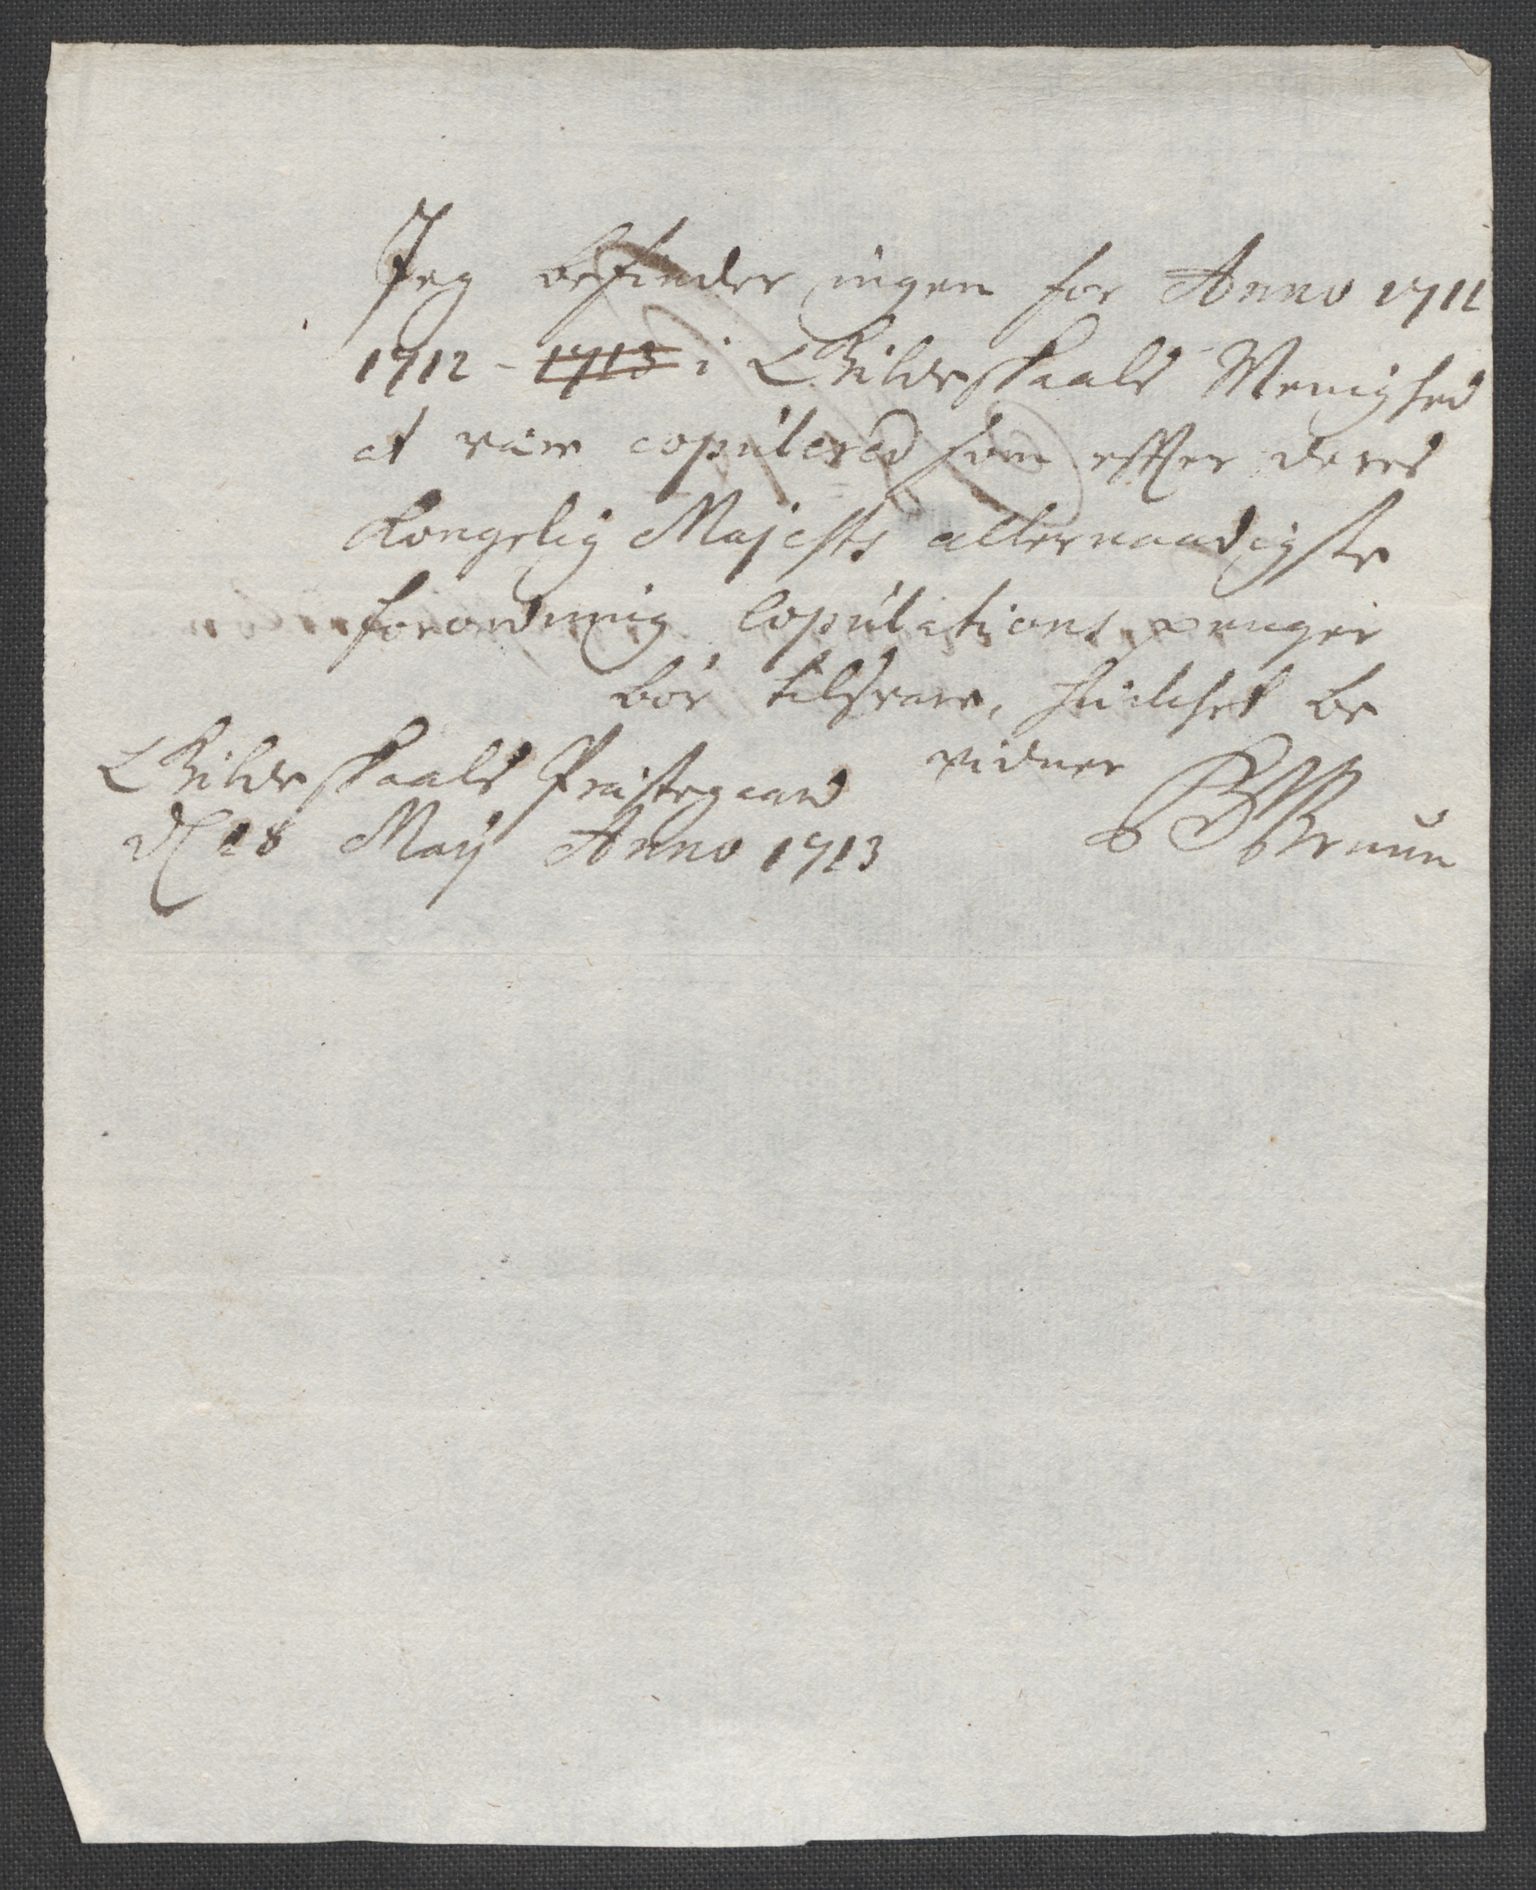 Jeg befinder ingen for Anno 1711
1712 - 1713 i Gildeskaals Menighed
at være copulered som effter deres
Kongelig Majests allernaadigste
forordning Copulations penger
bør tilsvare, huilchet be
vidner
Gildeskaals Præstegaard
d 28 Maij Anno 1713
Bruun